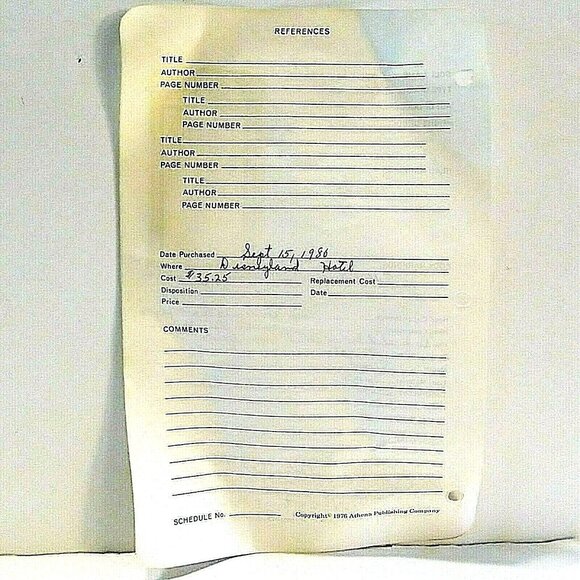 REFERENCES
TITLE
AUTHOR
PAGE NUMBER
TITLE
AUTHOR
PAGE NUMBER
TITLE
AUTHOR
PAGE NUMBER
TITLE
AUTHOR
PAGE NUMBER
Date Purchased Sept 15, 1980
Where Disneyland Hotel
Cost $35.25 Replacement Cost
Disposition Date
Price
COMMENTS
SCHEDULE No. Copyright© 1976 Athena Publishing Company